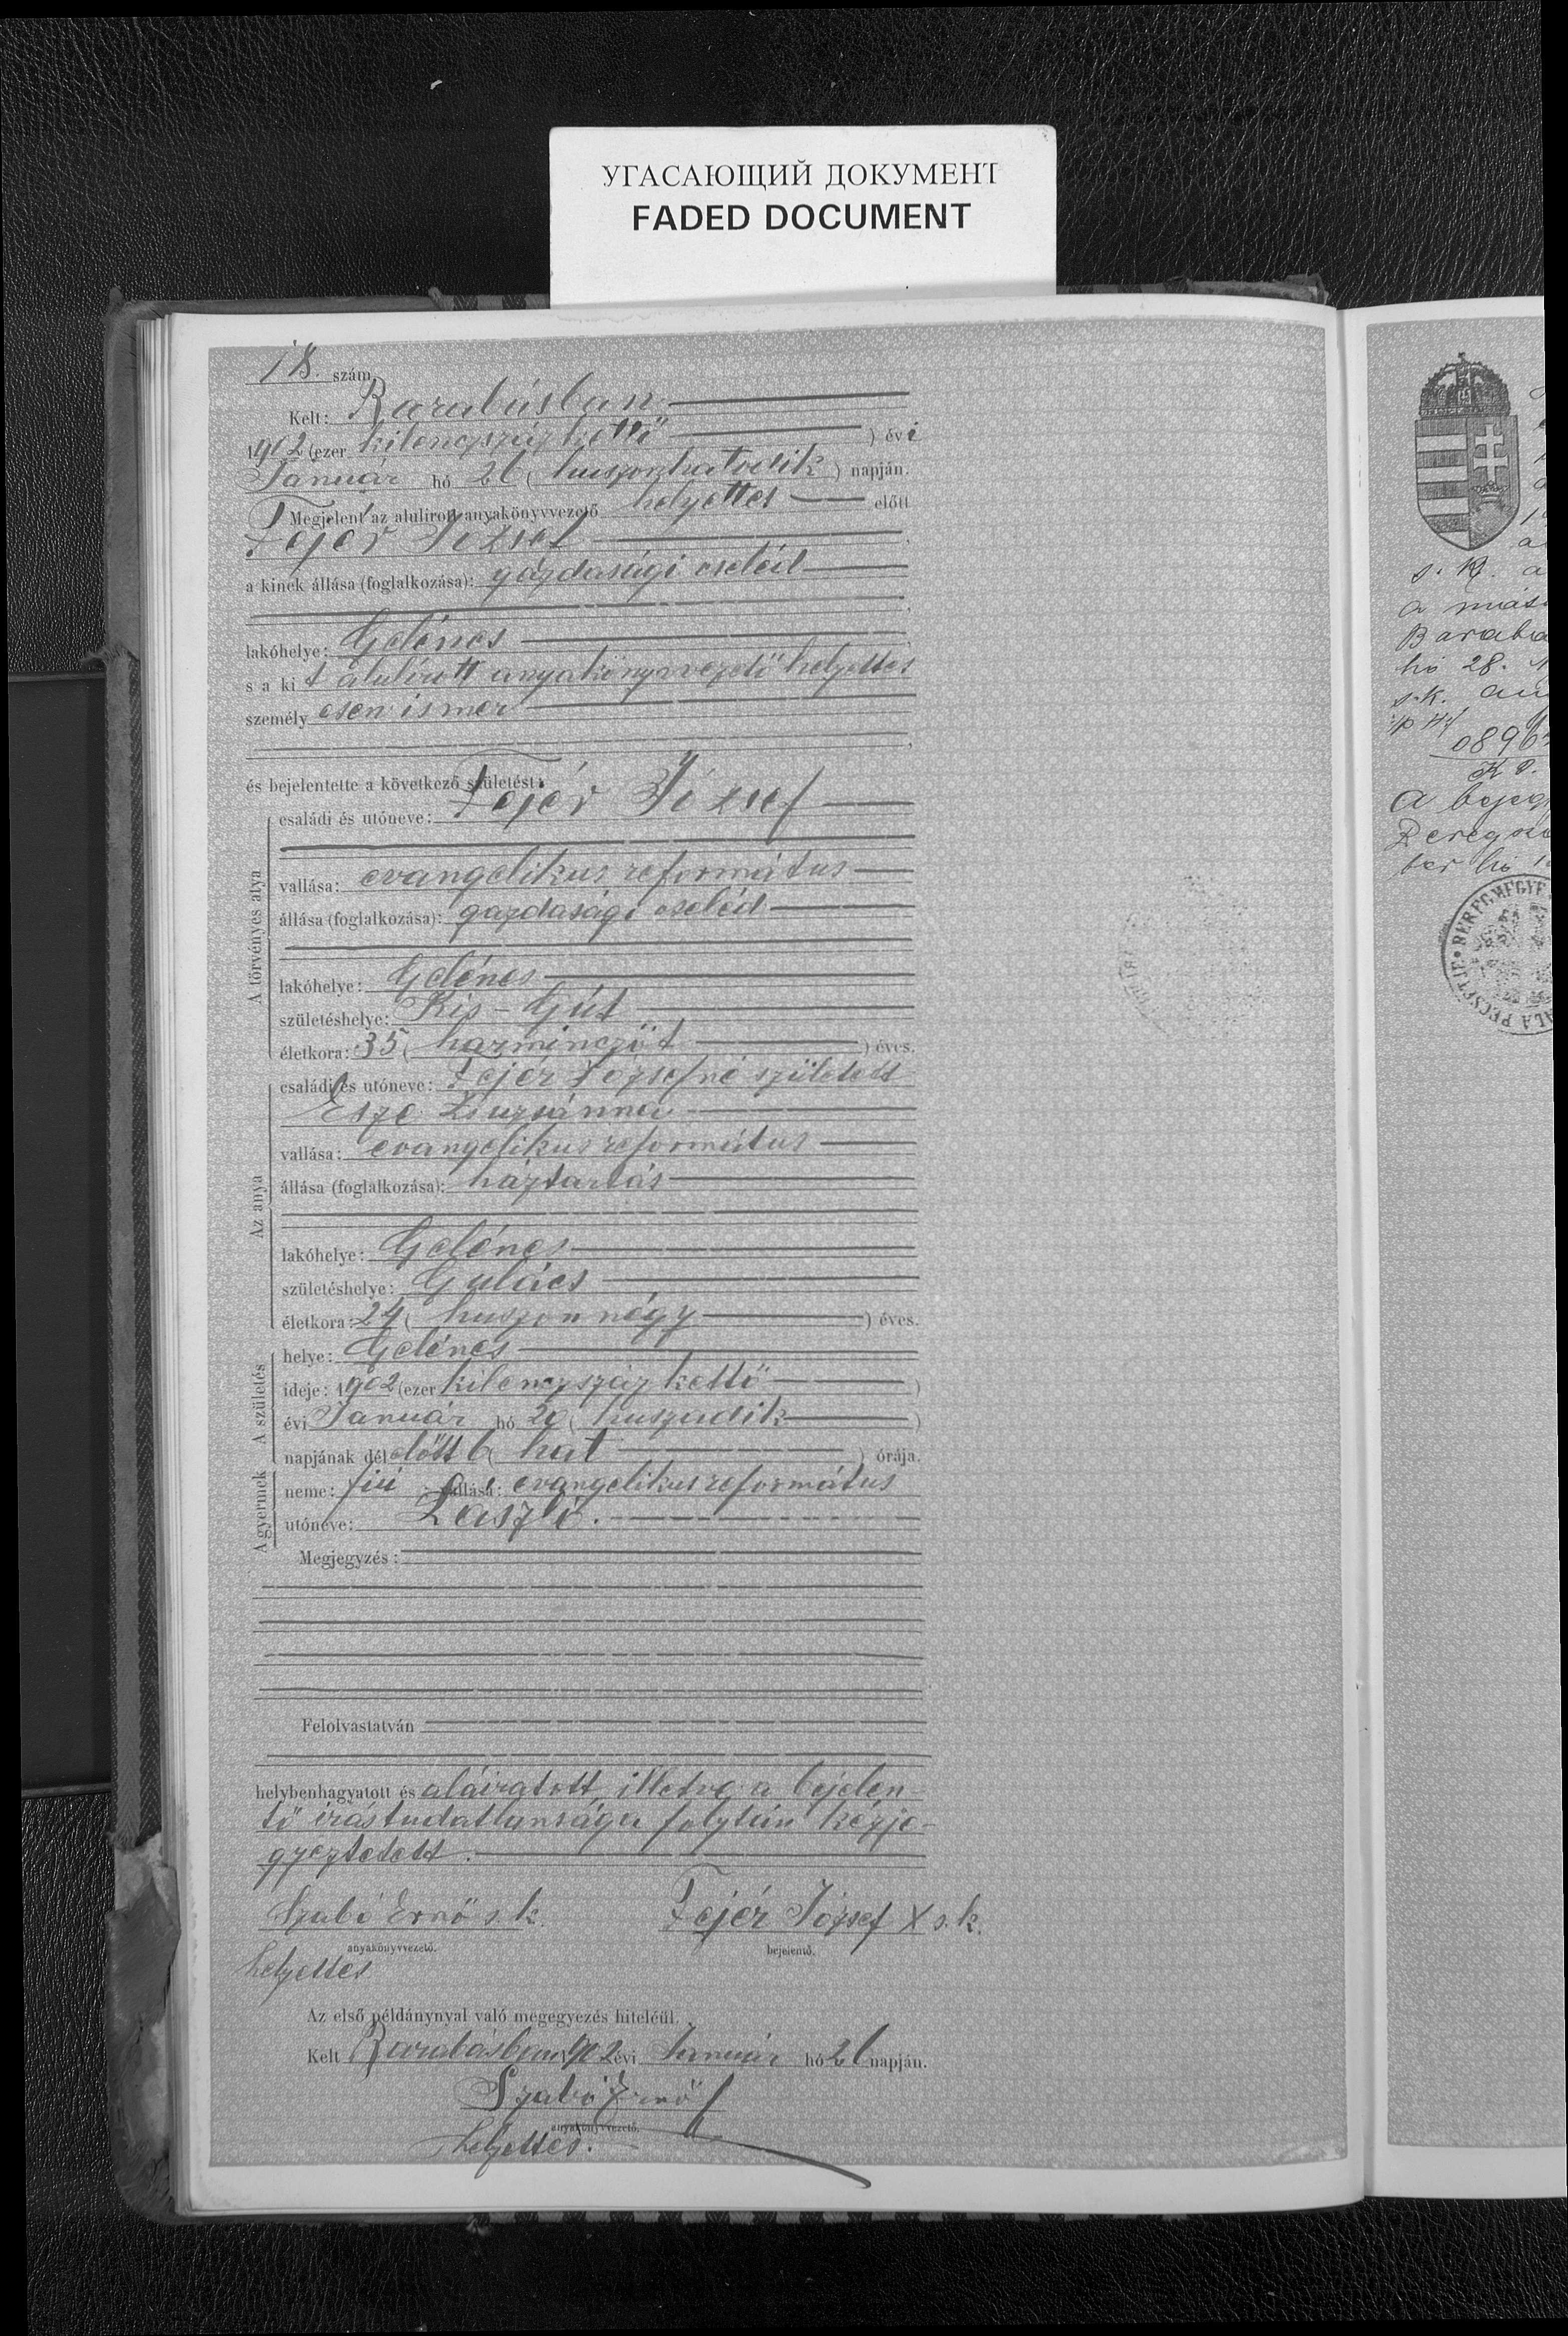 УГАСАЮЩИЙ ДОКУМЕНТ
FADED DOCUMENT
18. szám
Kelt: Barabásban
1902 (ezer kilenczszáz kettő ) évi
Január hó 26 ( huszonhatodik ) napján.
Megjelent az alulirott anyakönyvvezető helyettes előtt
Fejér József
a kinek állása (foglalkozása): gazdasági cseléd
lakóhelye: Gelénes
s a kit alulirott anyakönyvvezető helyettes
személyesen ismer
és bejelentette a következő születést:
A törvényes atya
családi és utóneve: Fejér József
vallása: evangelikus református
állása (foglalkozása): gazdasági cseléd
lakóhelye: Gelénes
születéshelye: Kis-Gút
életkora: 35 ( harminczöt ) éves.
Az anya
családi és utóneve: Fejér Józsefné született
Esze Zsuzsánna
vallása: evangelikus református
állása (foglalkozása): háztartás
lakóhelye: Gelénes
születéshelye: Gulács
életkora: 24 ( huszonnégy ) éves.
A születés
helye: Gelénes
ideje: 1902 (ezer kilenczszáz kettő )
évi Január hó 20 ( huszadik )
napjának délelőtt 6 ( hat ) órája.
A gyermek
neme: fiú vallása: evangelikus református
utóneve: László.
Megjegyzés:
Felolvastatván
helybenhagyatott és aláiratott, illetve a bejelen
tő irástudatlansága folytán kézje-
gyeztetett.
Szabó Ernő s k. Fejér József X s. k.
anyakönyvvezető. bejelentő.
helyettes
Az első példánynyal való megegyezés hiteléül.
Kelt Barabásban 1902 évi Január hó 26 napján.
Szabó Ernő
anyakönyvvezető.
helyettes.
s. k. a
a
Baraba
hó 28.
s. k.
0896
a bejeg
Beregsz
ber hó
BEREGMEGYE
ALA PECSÉTJE